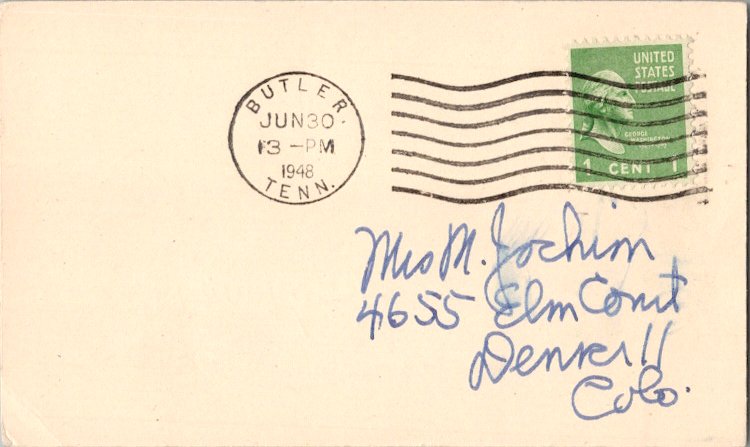 BUTLER.
JUN 30
13 -PM
1948
TENN.
UNITED
STATES
POSTAGE
GEORGE
WASHINGTON
1 CENT 1
Mrs M. Jochim
4655 Elm Court
Denver 11
Colo.